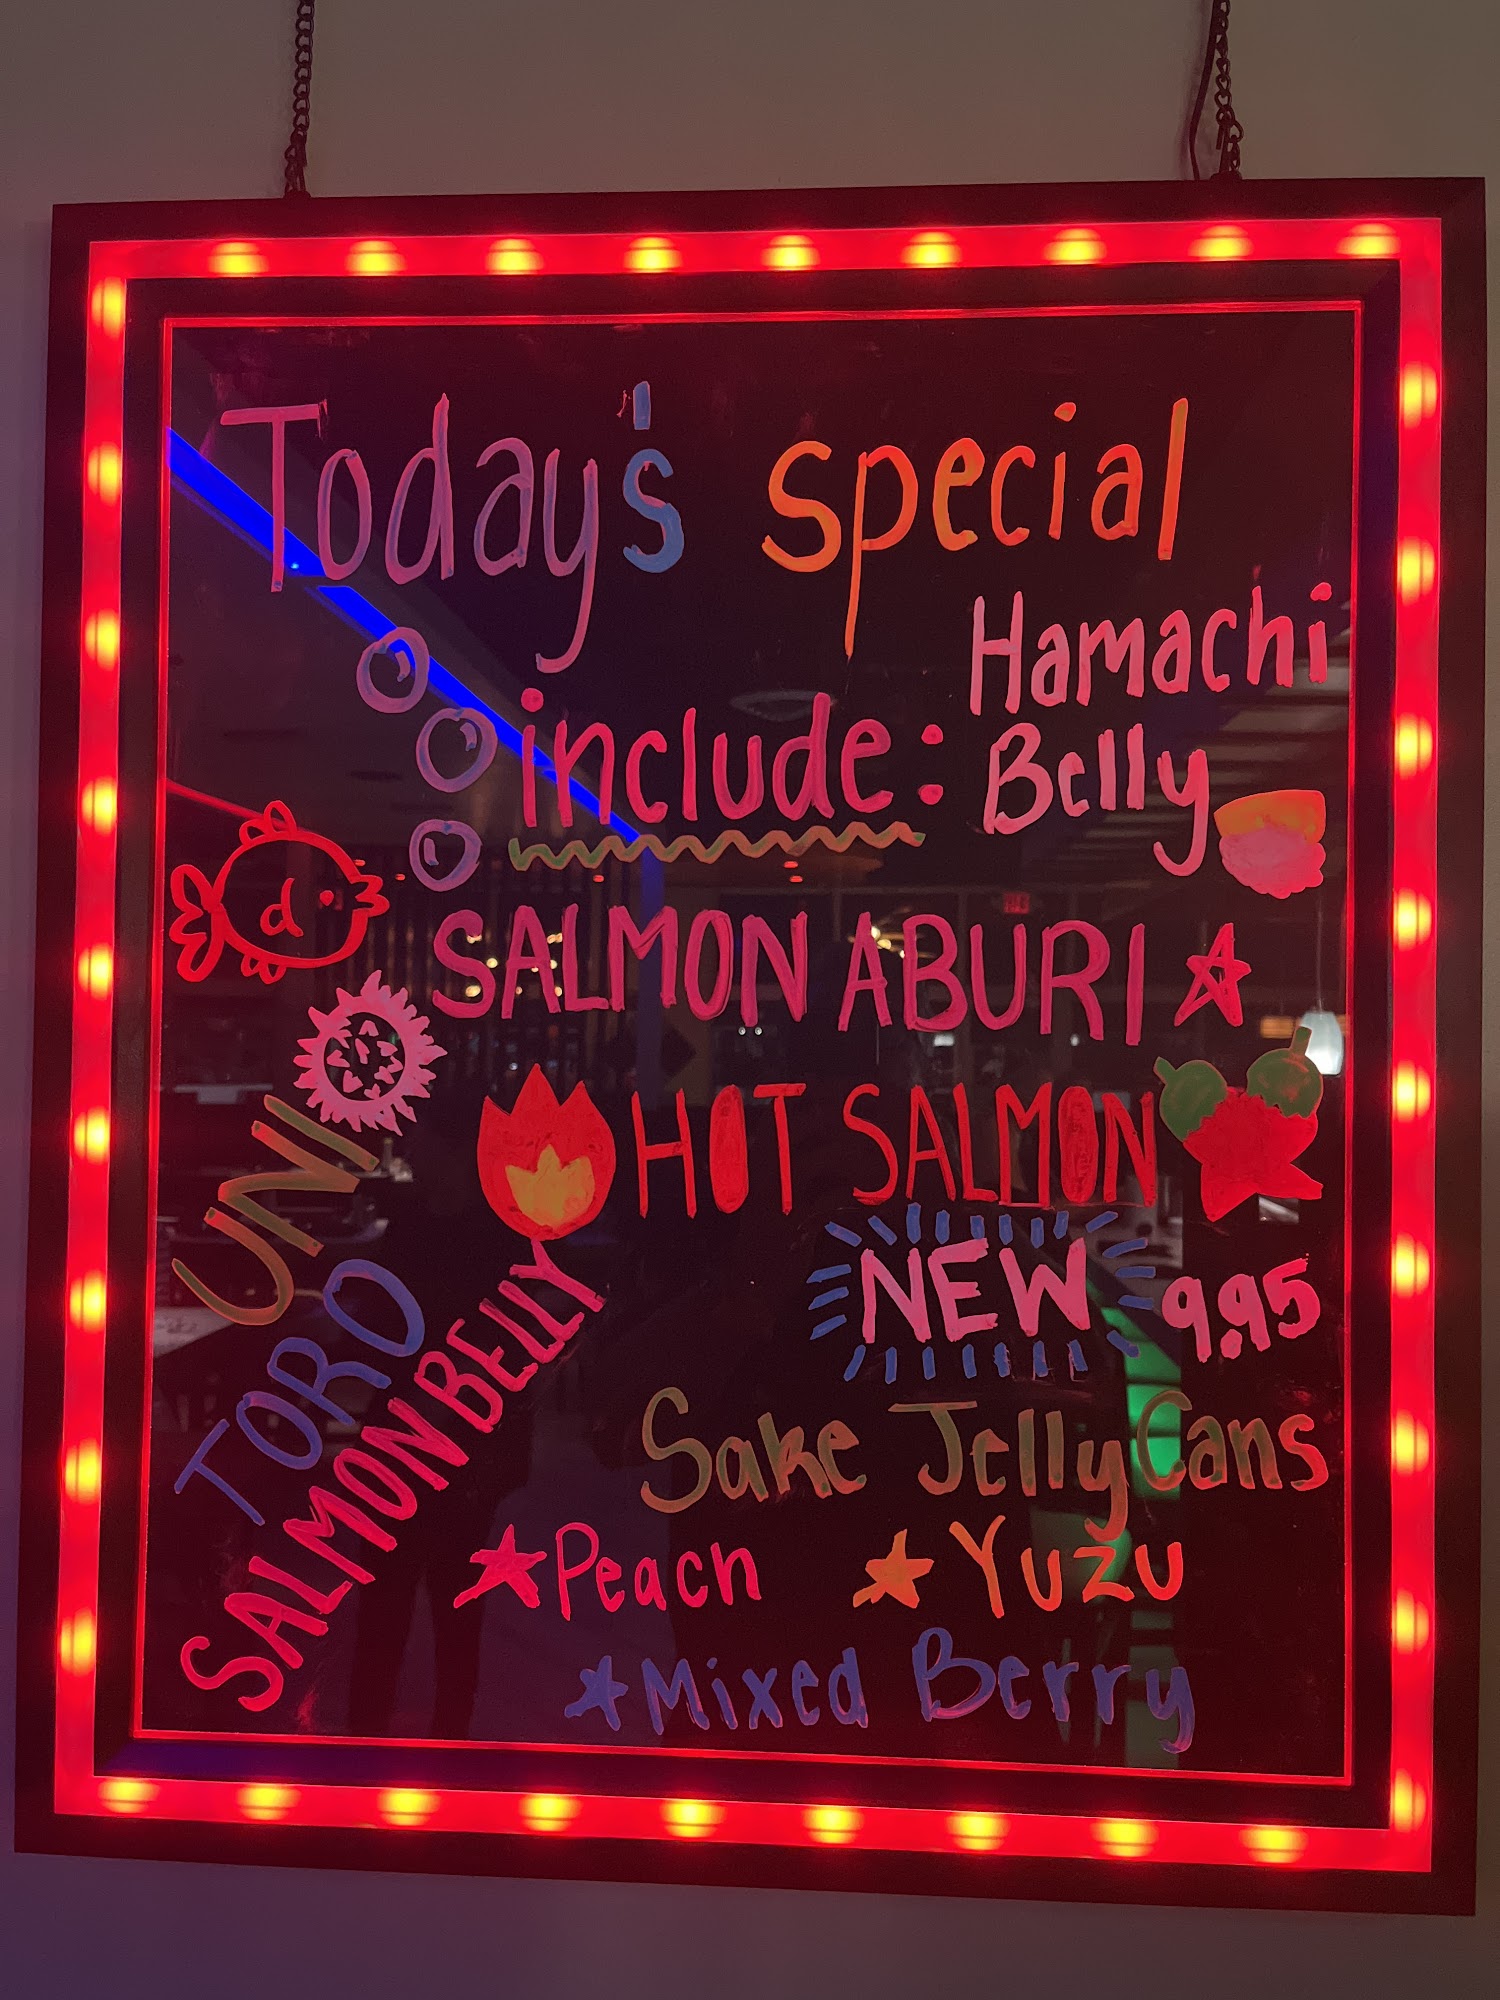 Today's special
include:
Hamachi
Belly
SALMON ABURI
HOT SALMON
UNI
TORO
SALMON BELLY
NEW 9.95
Sake Jelly Cans
Peach
Yuzu
Mixed Berry